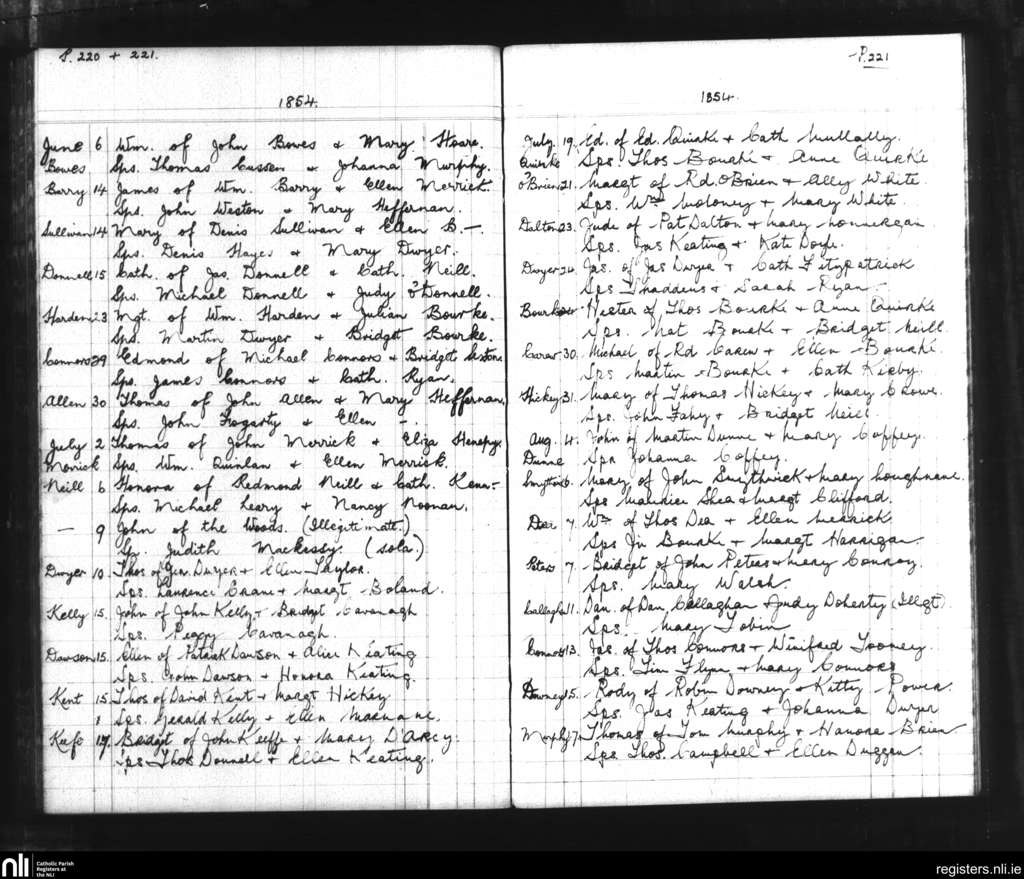 P. 220 + 221.
1854.
June 6 Wm. of John Bowes & Mary Hoare.
Bowes Sps. Thomas Cussen & Johanna Murphy.
Barry 14 James of Wm. Barry & Ellen Merrick.
Sps. John Weston & Mary Heffernan.
Sullivan 14 Mary of Denis Sullivan & Ellen B.-.
Sps. Denis Hayes & Mary Dwyer.
Donnell 15 Cath. of Jas. Donnell & Cath. Neill.
Sps. Michael Donnell & Judy O'Donnell.
Harden 23 Mgt. of Wm. Harden & Julian Bourke.
Sps. Martin Dwyer & Bridget Bourke.
Connors 29 Edmond of Michael Connors & Bridget
Sps. James Connors & Cath. Ryan.
Allen 30 Thomas of John Allen & Mary Heffernan.
Sps. John Fogarty & Ellen -.
July 2 Thomas of John Merrick & Eliza
Merrick Sps. Wm. Quinlan & Ellen Merrick.
Neill 6 Honora of Redmond Neill & Cath. Kenn-
Sps. Michael Leary & Nancy Noonan.
— 9 John of the Woods. (Illegitimate.)
Sp. Judith Mackessy. (sola.)
Dwyer 10. Thos of Dwyer & Ellen Taylor.
Sps. Laurence Crane & Margt. Boland.
Kelly 15. John of John Kelly & Bridget Cavanagh
Sps. Peggy Cavanagh.
Dawson 15. Ellen of Patrick Dawson & Alice Keating
Sps. John Dawson & Honora Keating.
Kent 15. Thos of David Kent & Margt Hickey
Sps. Gerald Kelly & Ellen Marnane.
Keefe 17. Bridget of John Keeffe & Mary D'Arcy.
Sps Thos Donnell & Ellen Keating.
P.221
1854.
July. 19. Ed. of Ed. Quirke & Cath Mullally.
Quirke Sps Thos Bourke & Anne Quirke
O'Brien 21. Margt of Rd. O'Brien & Ally White.
Sps. Wm Moloney & Mary White.
Dalton 23. Jude of Pat Dalton & Mary Lonnergan
Sps. Jas Keating & Kate Doyle.
Dwyer 24. Jas. of Jas Dwyer & Cath Fitzpatrick
Sps Thaddeus & Sarah Ryan
Bourke Hester of Thos Bourke & Anne Quirke
Sps. Mat Bourke & Bridget Neill.
Carew 30. Michael of Rd Carew & Ellen Bourke.
Sps Martin Bourke & Cath Kirby.
Hickey 31. Mary of Thomas Hickey & Mary Crowe.
Sps. John Fahy & Bridget Neill.
Aug. 4. John of Martin Dunne & Mary Coffey.
Dunne Spr Johanna Coffey.
6. Mary of John Smythwick & Mary Loughnane.
Sps Maurice Shea & Margt Clifford.
Dea 7. Wm of Thos Dea & Ellen Merrick
Sps Jn Bourke & Margt Hannigan.
Peters 7. Bridget of John Peters & Mary Conroy.
Sps. Mary Walsh.
Callaghan 11. Dan. of Dan. Callaghan & Judy Doherty (Illgt)
Sps. Mary Tobin
Connors 13. Jas. of Thos Connors & Winifred Tooney.
Sps. Tim Flynn & Mary Connors
Downey 15. Rody of Robin Downey & Kitty Power.
Sps. Jas Keating & Johanna Dwyer
Murphy 17. Thomas of Tom Murphy & Hanora Brien
Sps Thos. Campbell & Ellen Duggan.
nli
Catholic Parish
Registers at
the NLI
registers.nli.ie